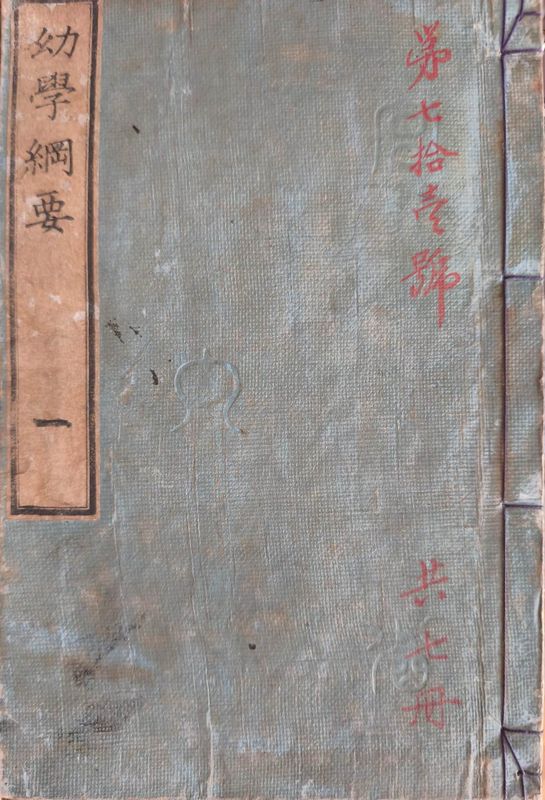 第七拾壱號
共七冊
幼學綱要
一